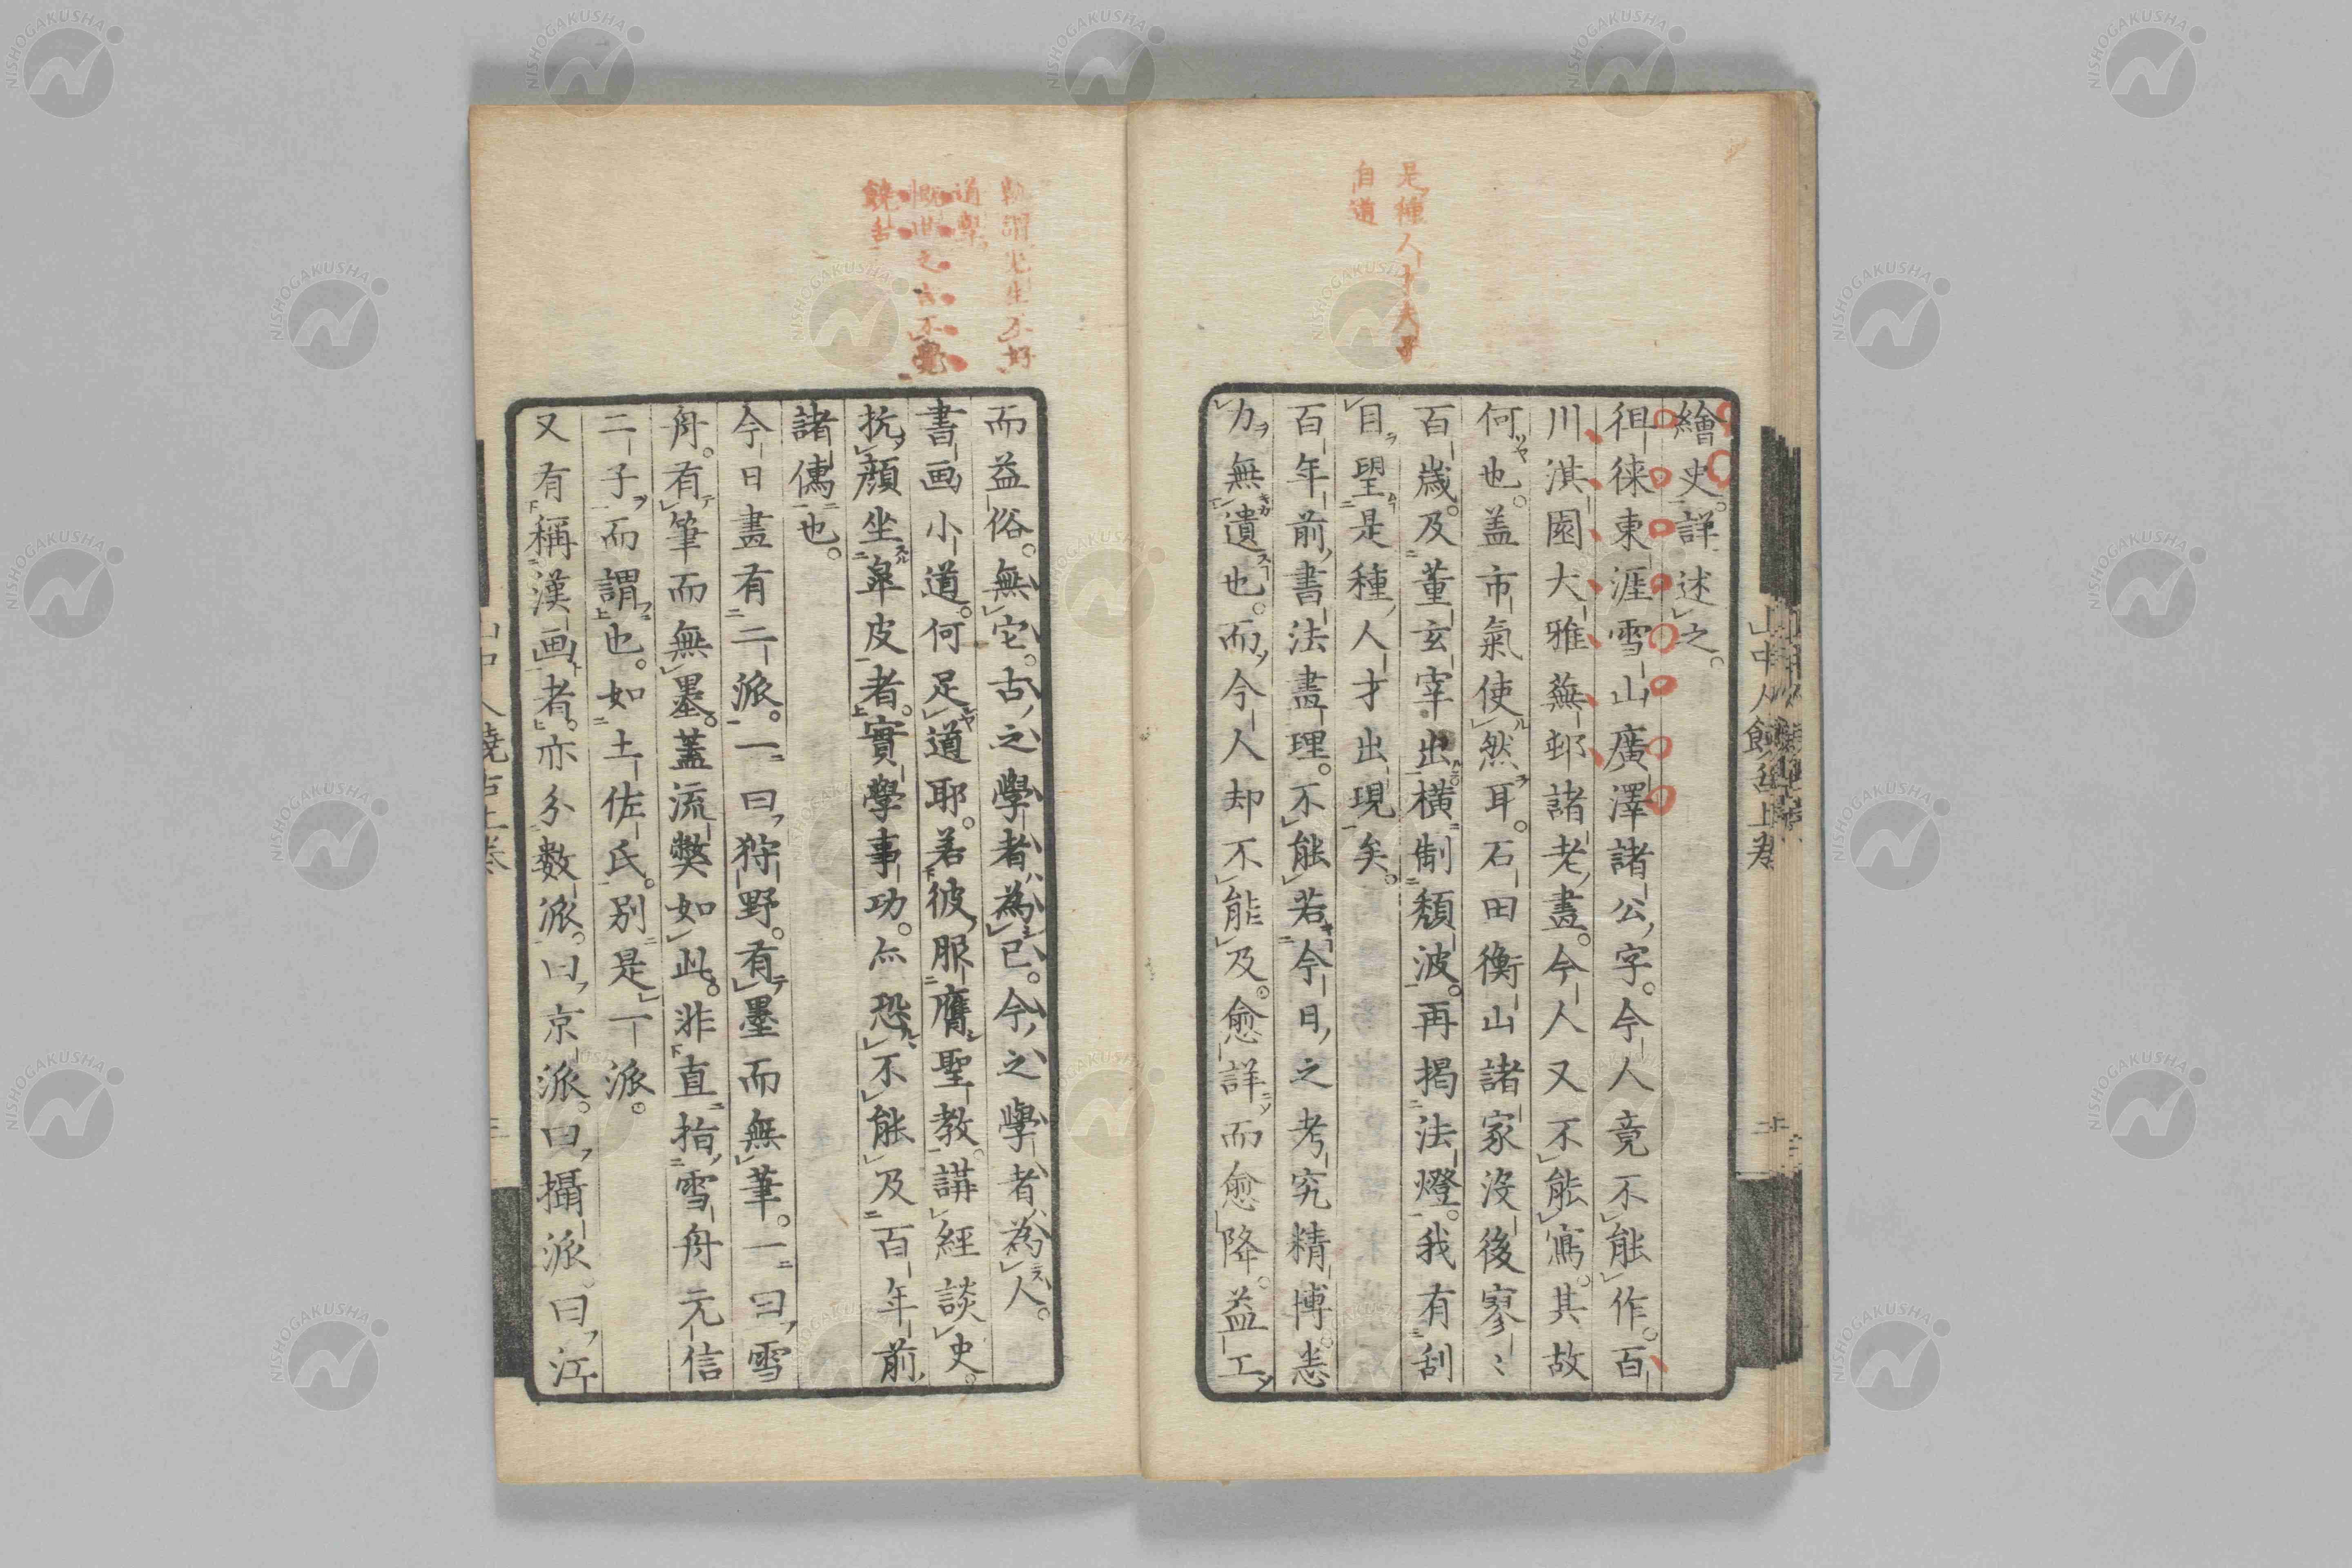 是種人才夫子
自道
繪史詳述之。
徂徠東涯雪山廣澤諸公字。今人竟不能作。百
川淇園大雅蕪邨諸老畫。今人又不能寫。其故
何也。盖市氣使然耳。石田衡山諸家沒後寥〻
百歲。及董玄宰出橫制頽波。再揭法燈。我有刮
目望是種人才出現矣。
百年前書法畫理。不能若今日之考究精博悉
力無遺也。而今人却不能及。愈詳而愈降。益工
山中人饒舌上卷
孰謂先生不好
道學
慨世之言不覺
饒舌
而益俗。無它。古之學者為己。今之學者為人。
書画小道。何足道耶。若彼服膺聖教。講經談史。
抗顔坐皐皮者。實學事功。亦恐不能及百年前
諸儒也。
今日畫有二派。一曰狩野。有墨而無筆。一曰雪
舟。有筆而無墨。蓋流弊如此。非直指雪舟元信
二子而謂也。如土佐氏。別是一派。
又有稱漢画者。亦分数派。曰京派。曰攝派。曰江
山中人饒舌上卷
NISHOGAKUSHA